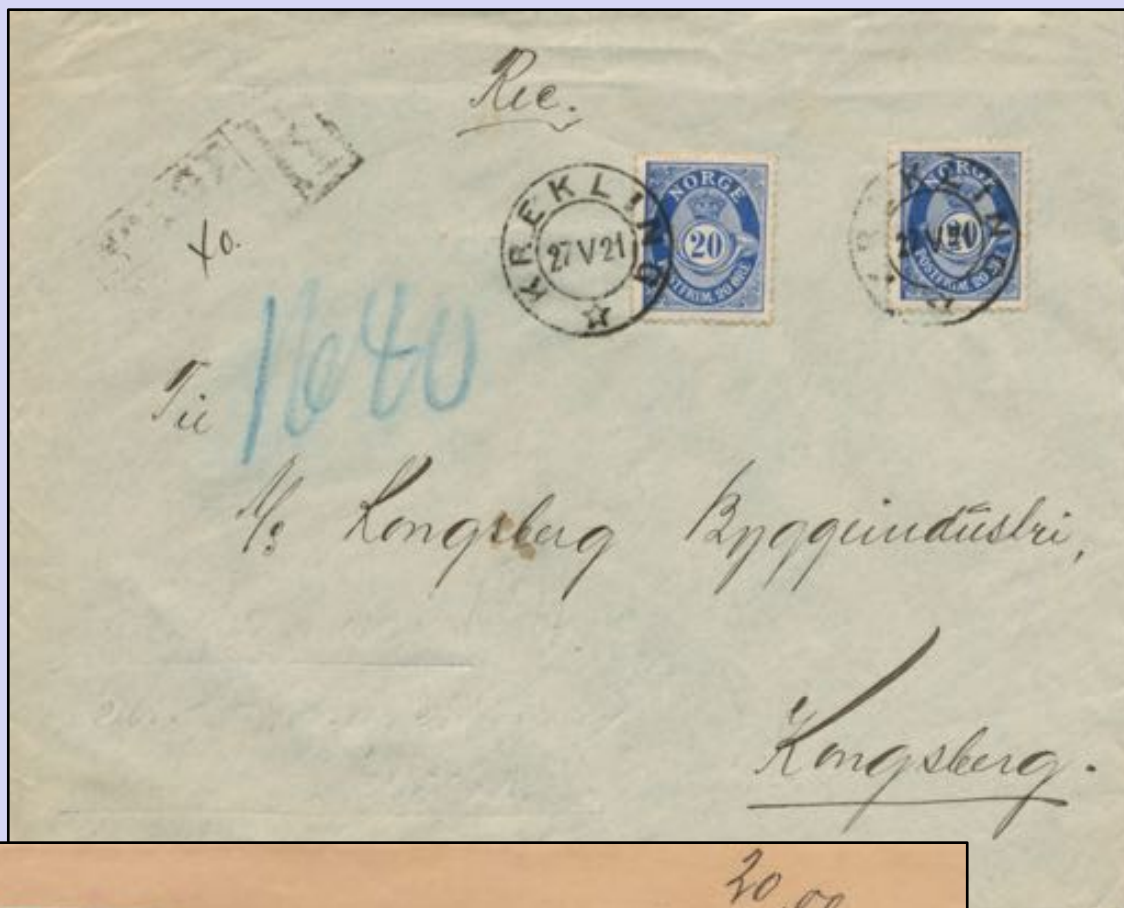 Rec.
KREKLING
27 V 21
NORGE
20
POSTFRIM. 20 ØRE
KREKLING
NORGE
20
POSTFRIM. 20 ØRE
Til
1640
A/s Kongsberg Byggeindustri,
Kongsberg.
20